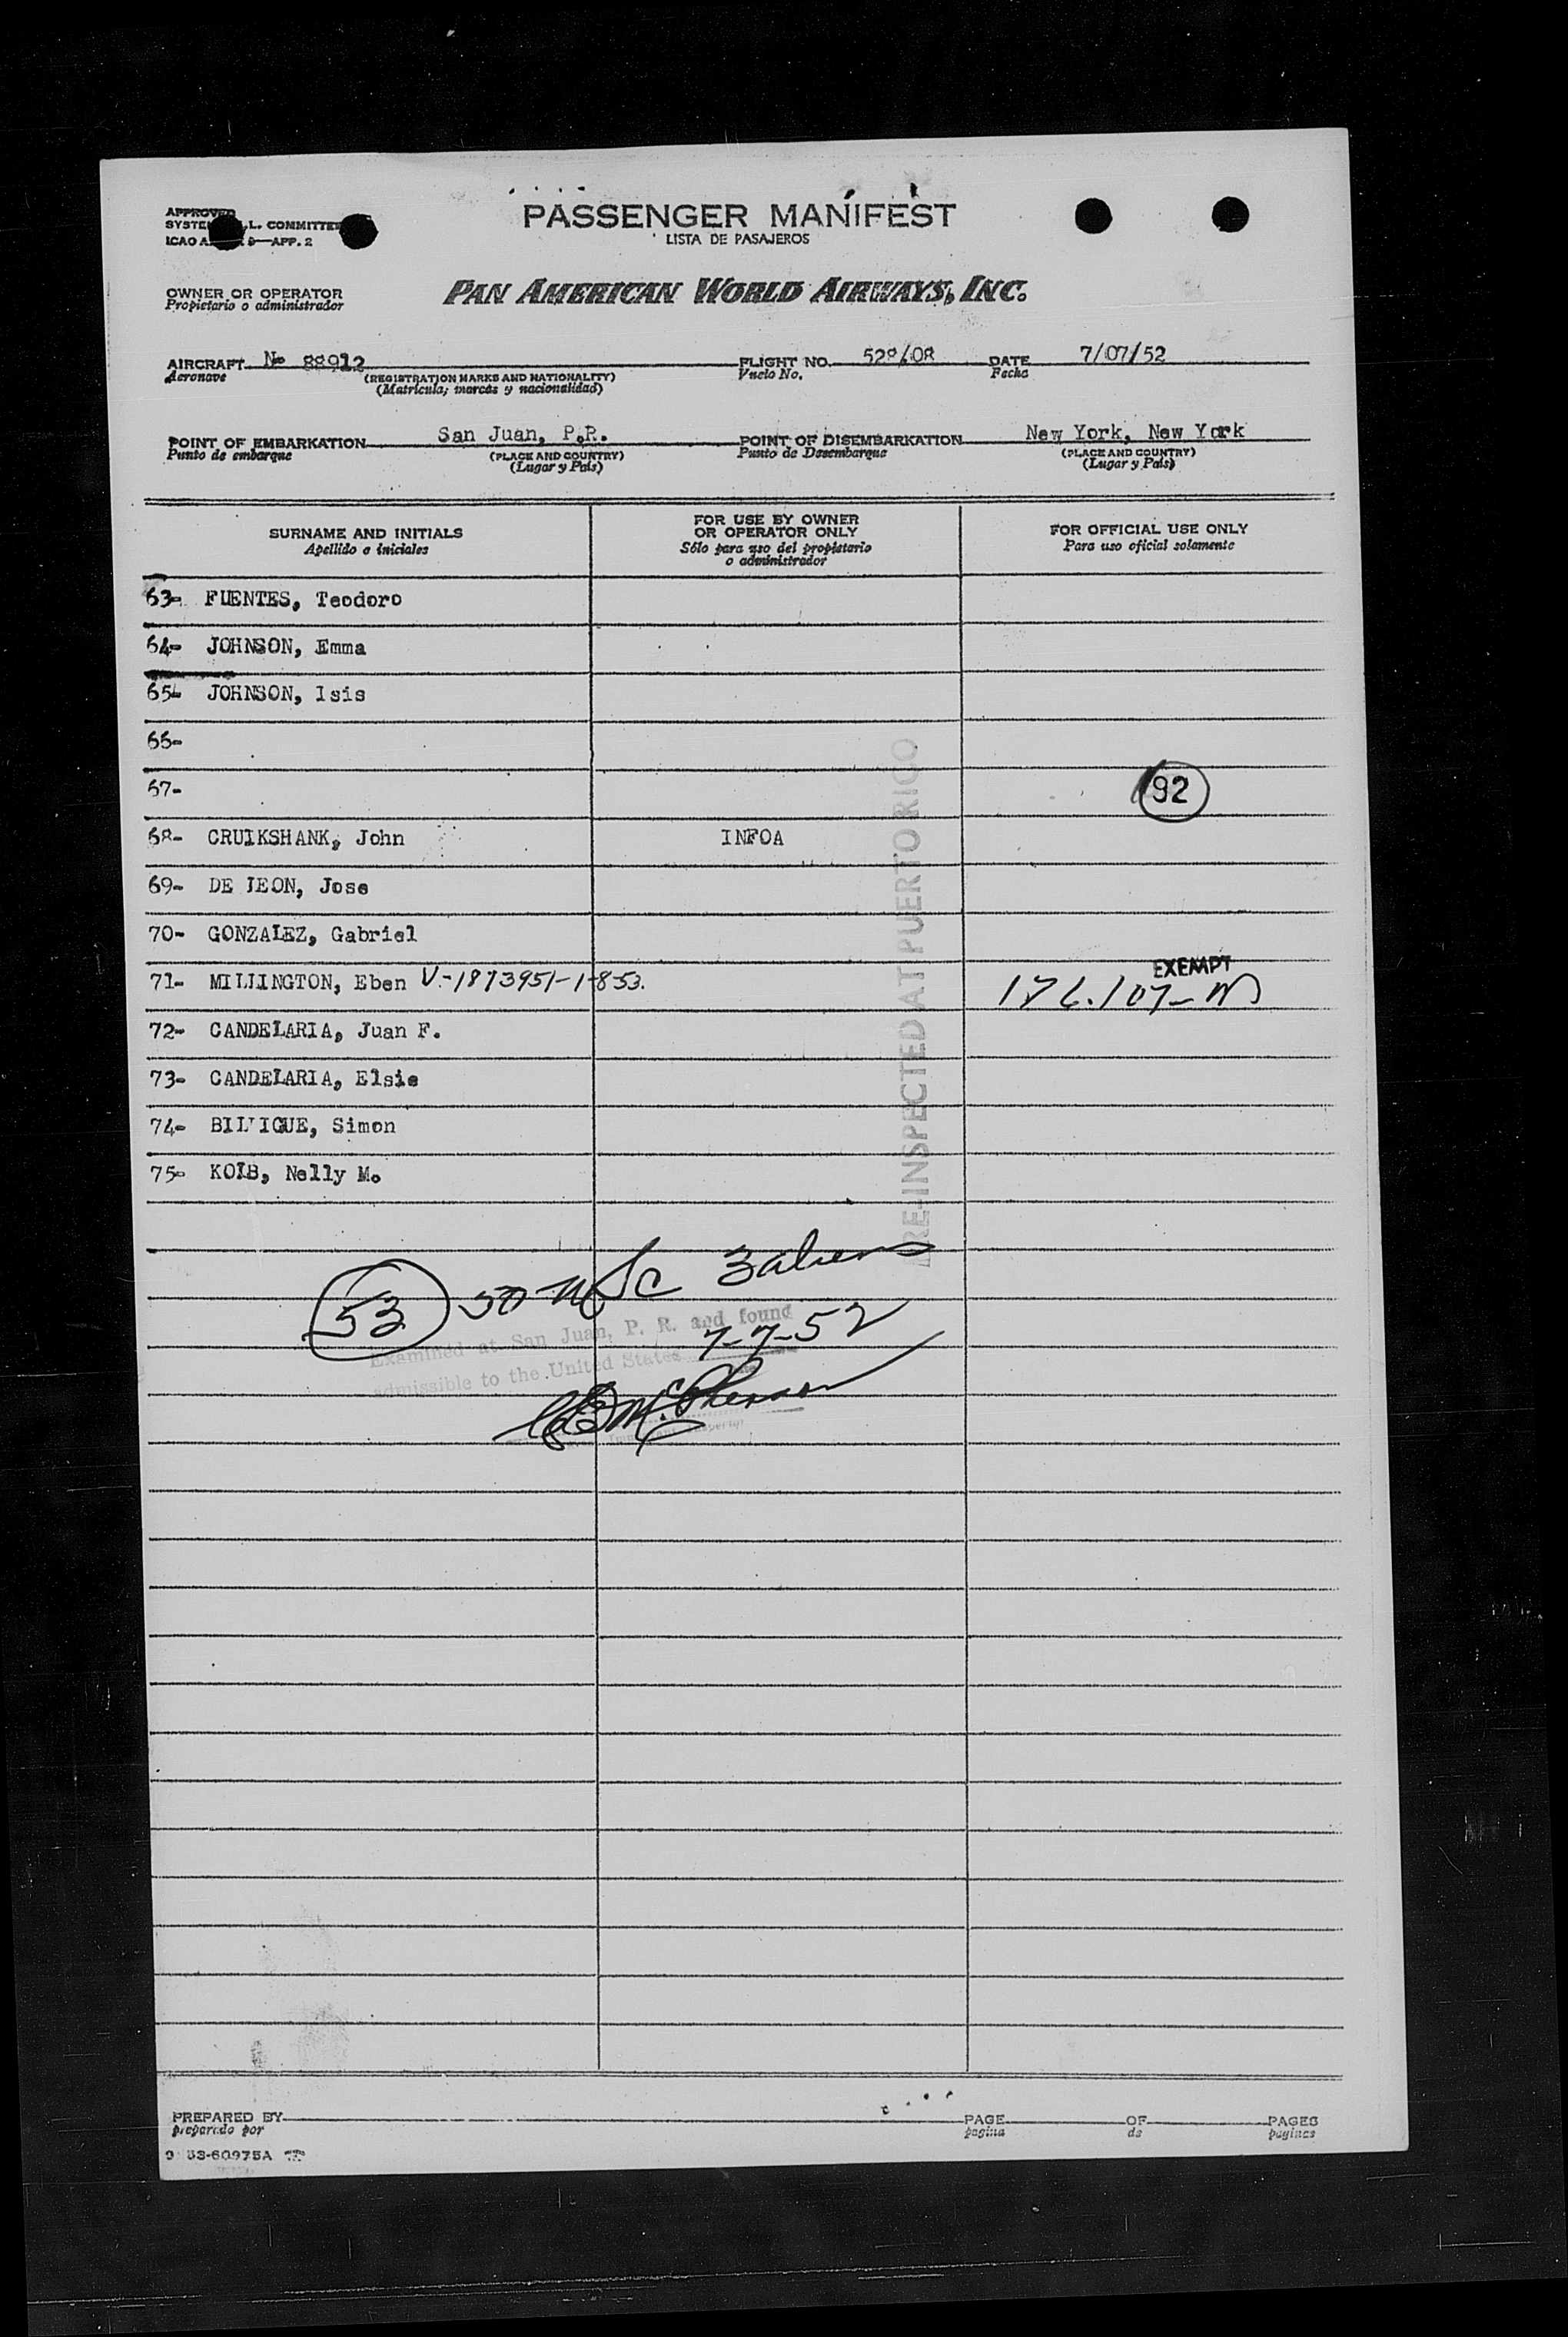 APPROVED
SYSTE L. COMMITTEE
ICAO A 9—APP. 2
PASSENGER MANIFEST
LISTA DE PASAJEROS
OWNER OR OPERATOR
Propietario o administrador
PAN AMERICAN WORLD AIRWAYS, INC.
AIRCRAFT No 88912 FLIGHT NO. 528/08 DATE 7/07/52
Aeronave (REGISTRATION MARKS AND NATIONALITY) Vuelo No. Fecha
(Matrícula; marcas y nacionalidad)
POINT OF EMBARKATION San Juan, P.R. POINT OF DISEMBARKATION New York, New York
Punto de embarque (PLACE AND COUNTRY) Punto de Desembarque (PLACE AND COUNTRY)
(Lugar y País) (Lugar y País)
SURNAME AND INITIALS
Apellido e iniciales
FOR USE BY OWNER
OR OPERATOR ONLY
Sólo para uso del propietario
o administrador
FOR OFFICIAL USE ONLY
Para uso oficial solamente
63- FUENTES, Teodoro
64- JOHNSON, Emma
65- JOHNSON, Isis
66-
67- 92
68- CRUIKSHANK, John INFOA
69- DE LEON, Jose
70- GONZALEZ, Gabriel
71- MILLINGTON, Eben V-1873951-1-853. EXEMPT
176.107-
72- CANDELARIA, Juan F.
73- CANDELARIA, Elsie
74- Simon
75- KOLB, Nelly M.
PRE-INSPECTED AT PUERTO RICO
53 50 USC 3 aliens
Examined at San Juan, P. R. and found
7-7-52
admissible to the United States
McPherson
PREPARED BY PAGE OF PAGES
preparado por pagina de paginas
53-60975A